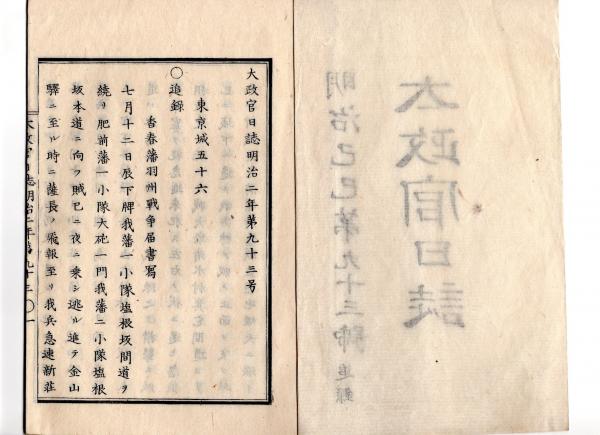 太政官日誌
明治己巳第九十三號 追録
太政官日誌明治二年第九十三号
東京城五十六
〇追録
香春藩羽州戦争届書寫
七月十二日辰下牌我藩一小隊塩根坂間道ヲ
繞リ肥前藩一小隊大砲一門我藩二小隊塩根
坂本道ニ向フ賊已ニ夜ニ乗シ逃ル進テ金山
驛ニ至ル時ニ薩長ノ飛報至リ我兵急速新荘
太政官日誌明治二年第九十三 〇一